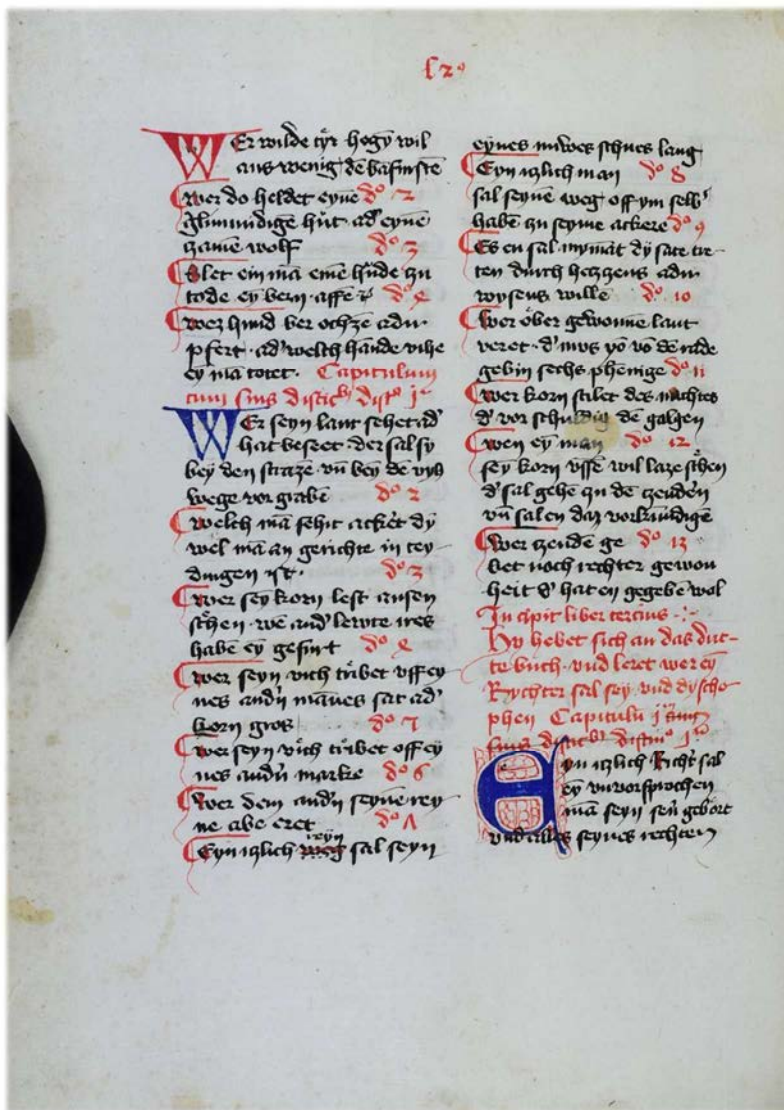 l2º
WEr wilde tyr hegÿ wil
aus wenig dē banfinstē
wer do heldet eynē dº 2
glimundigē hūt · ad' eynē
zamē wolf dº 3
Slet ein mā eine hūde zu
tode eȳ bern · affe dº 4
wez hund ber ochze adir
pfert · ad' welch hande vihe
eȳ mā totet · Capitulum
cum suis distic distº jª
WEr seyn lant sehet ad'
hat beseet · der sal sy
bey den straze · vn̄ bey dē vih
wege vor grabē dº 2
welch mā sehit acket dÿ
wel mā an gerichte in tey
dingen ist · dº 3
wer seȳ korn lest ausen
stehen · we and' lewte ires
haben eȳ gefurt dº 4
wer seyn vich tribet uff ey
nes andn̄ mānes sat ad'
korn gros dº 5
wer seyn vich tribet off ey
nes andn̄ marke dº 6
wer dem andn̄ seynē rey
ne abe eret dº 7
Eyn iczlich reyn sal seyn
eynes miwes schues lang
Eyn iczlich man dº 8
sal seynē weg off ym selb'
habē zu seyme ackere dº 9
Es en sal nymāt dÿ sate tre
ten durch heczzens adir
woysens wille dº 10
wer ober gewonnē lant
veret · d' mus yo vō dē rade
gebin sechs phenige dº 11
wer korn stilet des nachtes
d' vor schuldig dē galgen
wen eȳ man dº 12
seȳ korn uffē wil laze stehen
d' sal gehē zu dē czendēn
vn̄ sal en daz vorkundigē
wer czendē ge dº 13
bet noch rechter gewon
heit d' hat en gegebē wal
Incipit liber tercius ·:·
Hy hebet sich an das drit
te buch · und leret wer eȳ
Rychter sal sey · und dy scho
phen Capitulū jm cum
suis distic distinº jª
Eyn iczlich Richt' sal
eȳ unvorsprochen
mā seyn sen̄ gebort
und alles seynes rechten